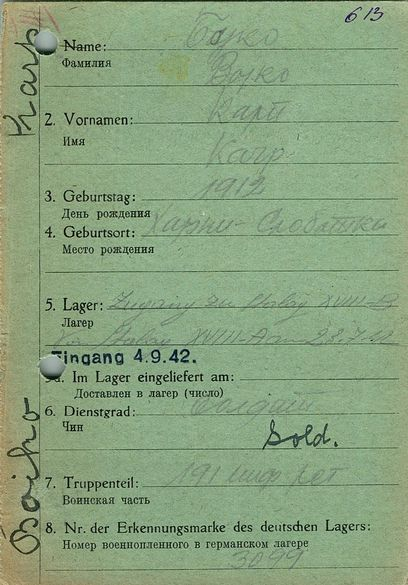 613
Name: Бойко
Фамилия
Bojko
2. Vornamen: Карп
Имя
Karp
3. Geburtstag: 1912
День рождения
4. Geburtsort:
Место рождения
5. Lager: Zugang zu Stalag XVIII-B
Лагер
von Stalag XVIII-A am 23.7.42
Eingang 4.9.42.
a. Im Lager eingeliefert am:
Доставлен в лагер (число)
6. Dienstgrad: Солдат
Чин
Sold.
7. Truppenteil: 191
Воинская часть
8. Nr. der Erkennungsmarke des deutschen Lagers:
Номер военнопленного в германском лагере
3099
Boiko Karp